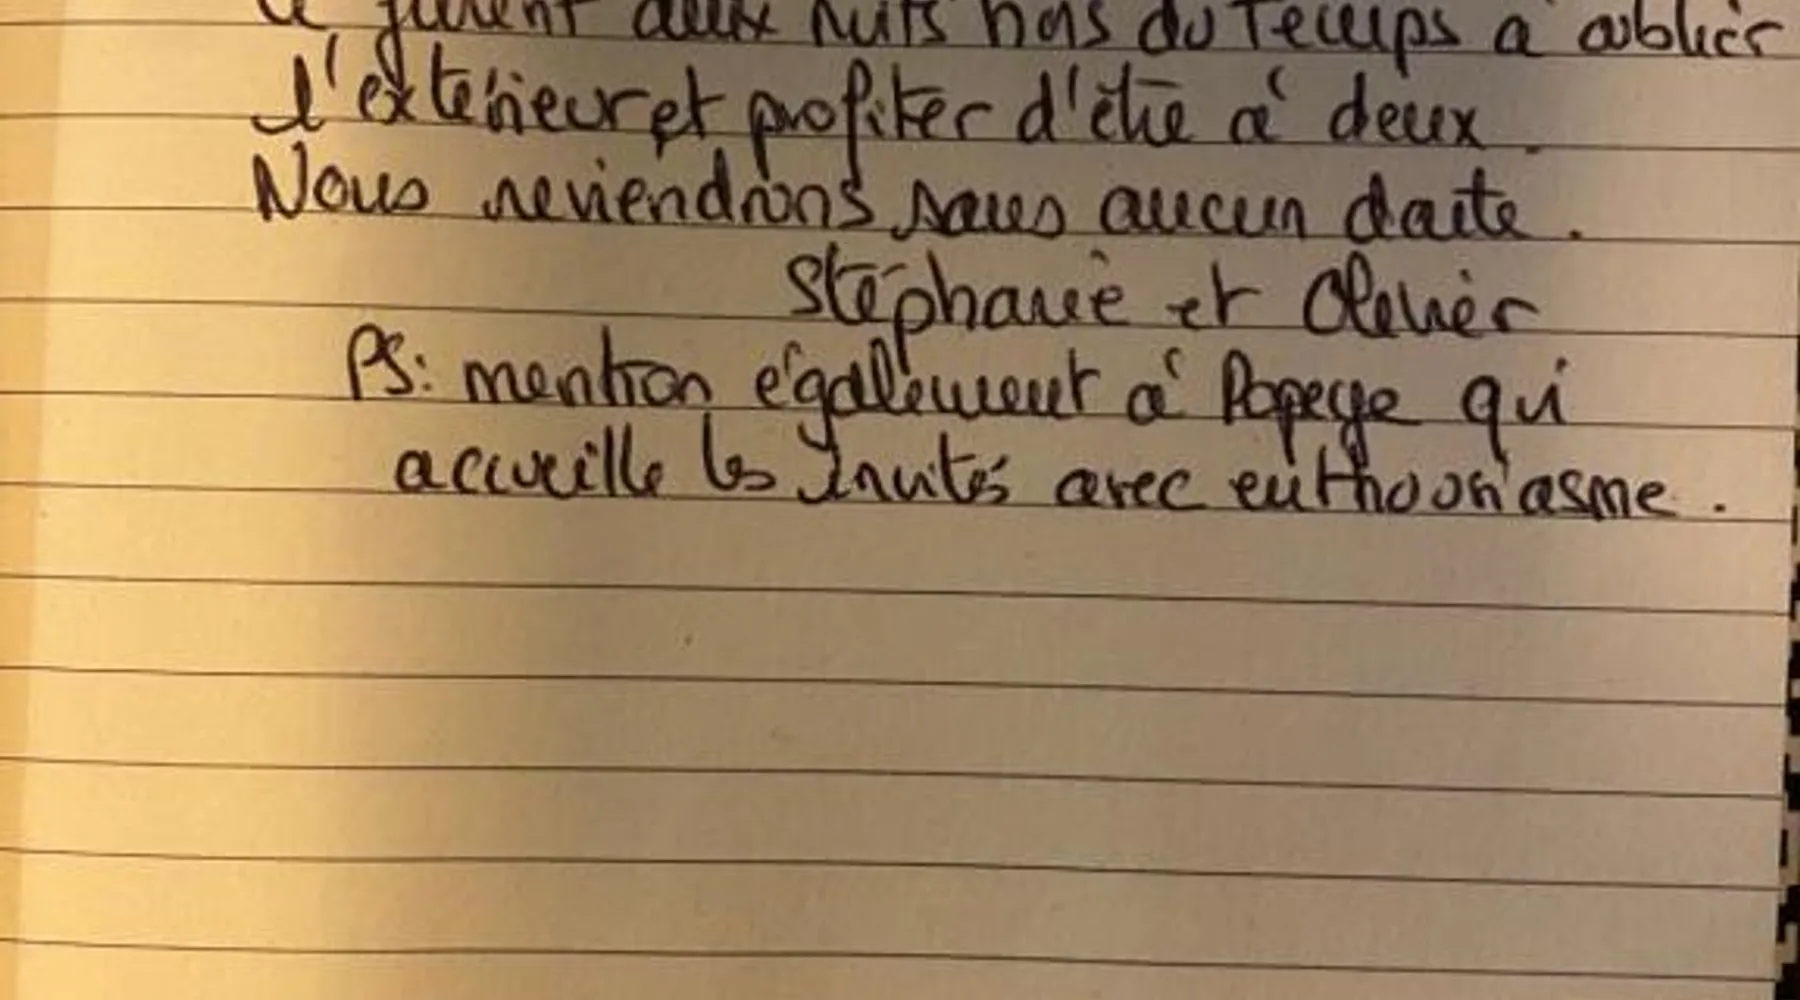 Ce furent deux nuits hors du temps à oublier
l'extérieur et profiter d'être à deux.
Nous reviendrons sans aucun doute.
Stéphanie et Olivier
PS: mention également à Popeye qui
accueille les invités avec enthousiasme.